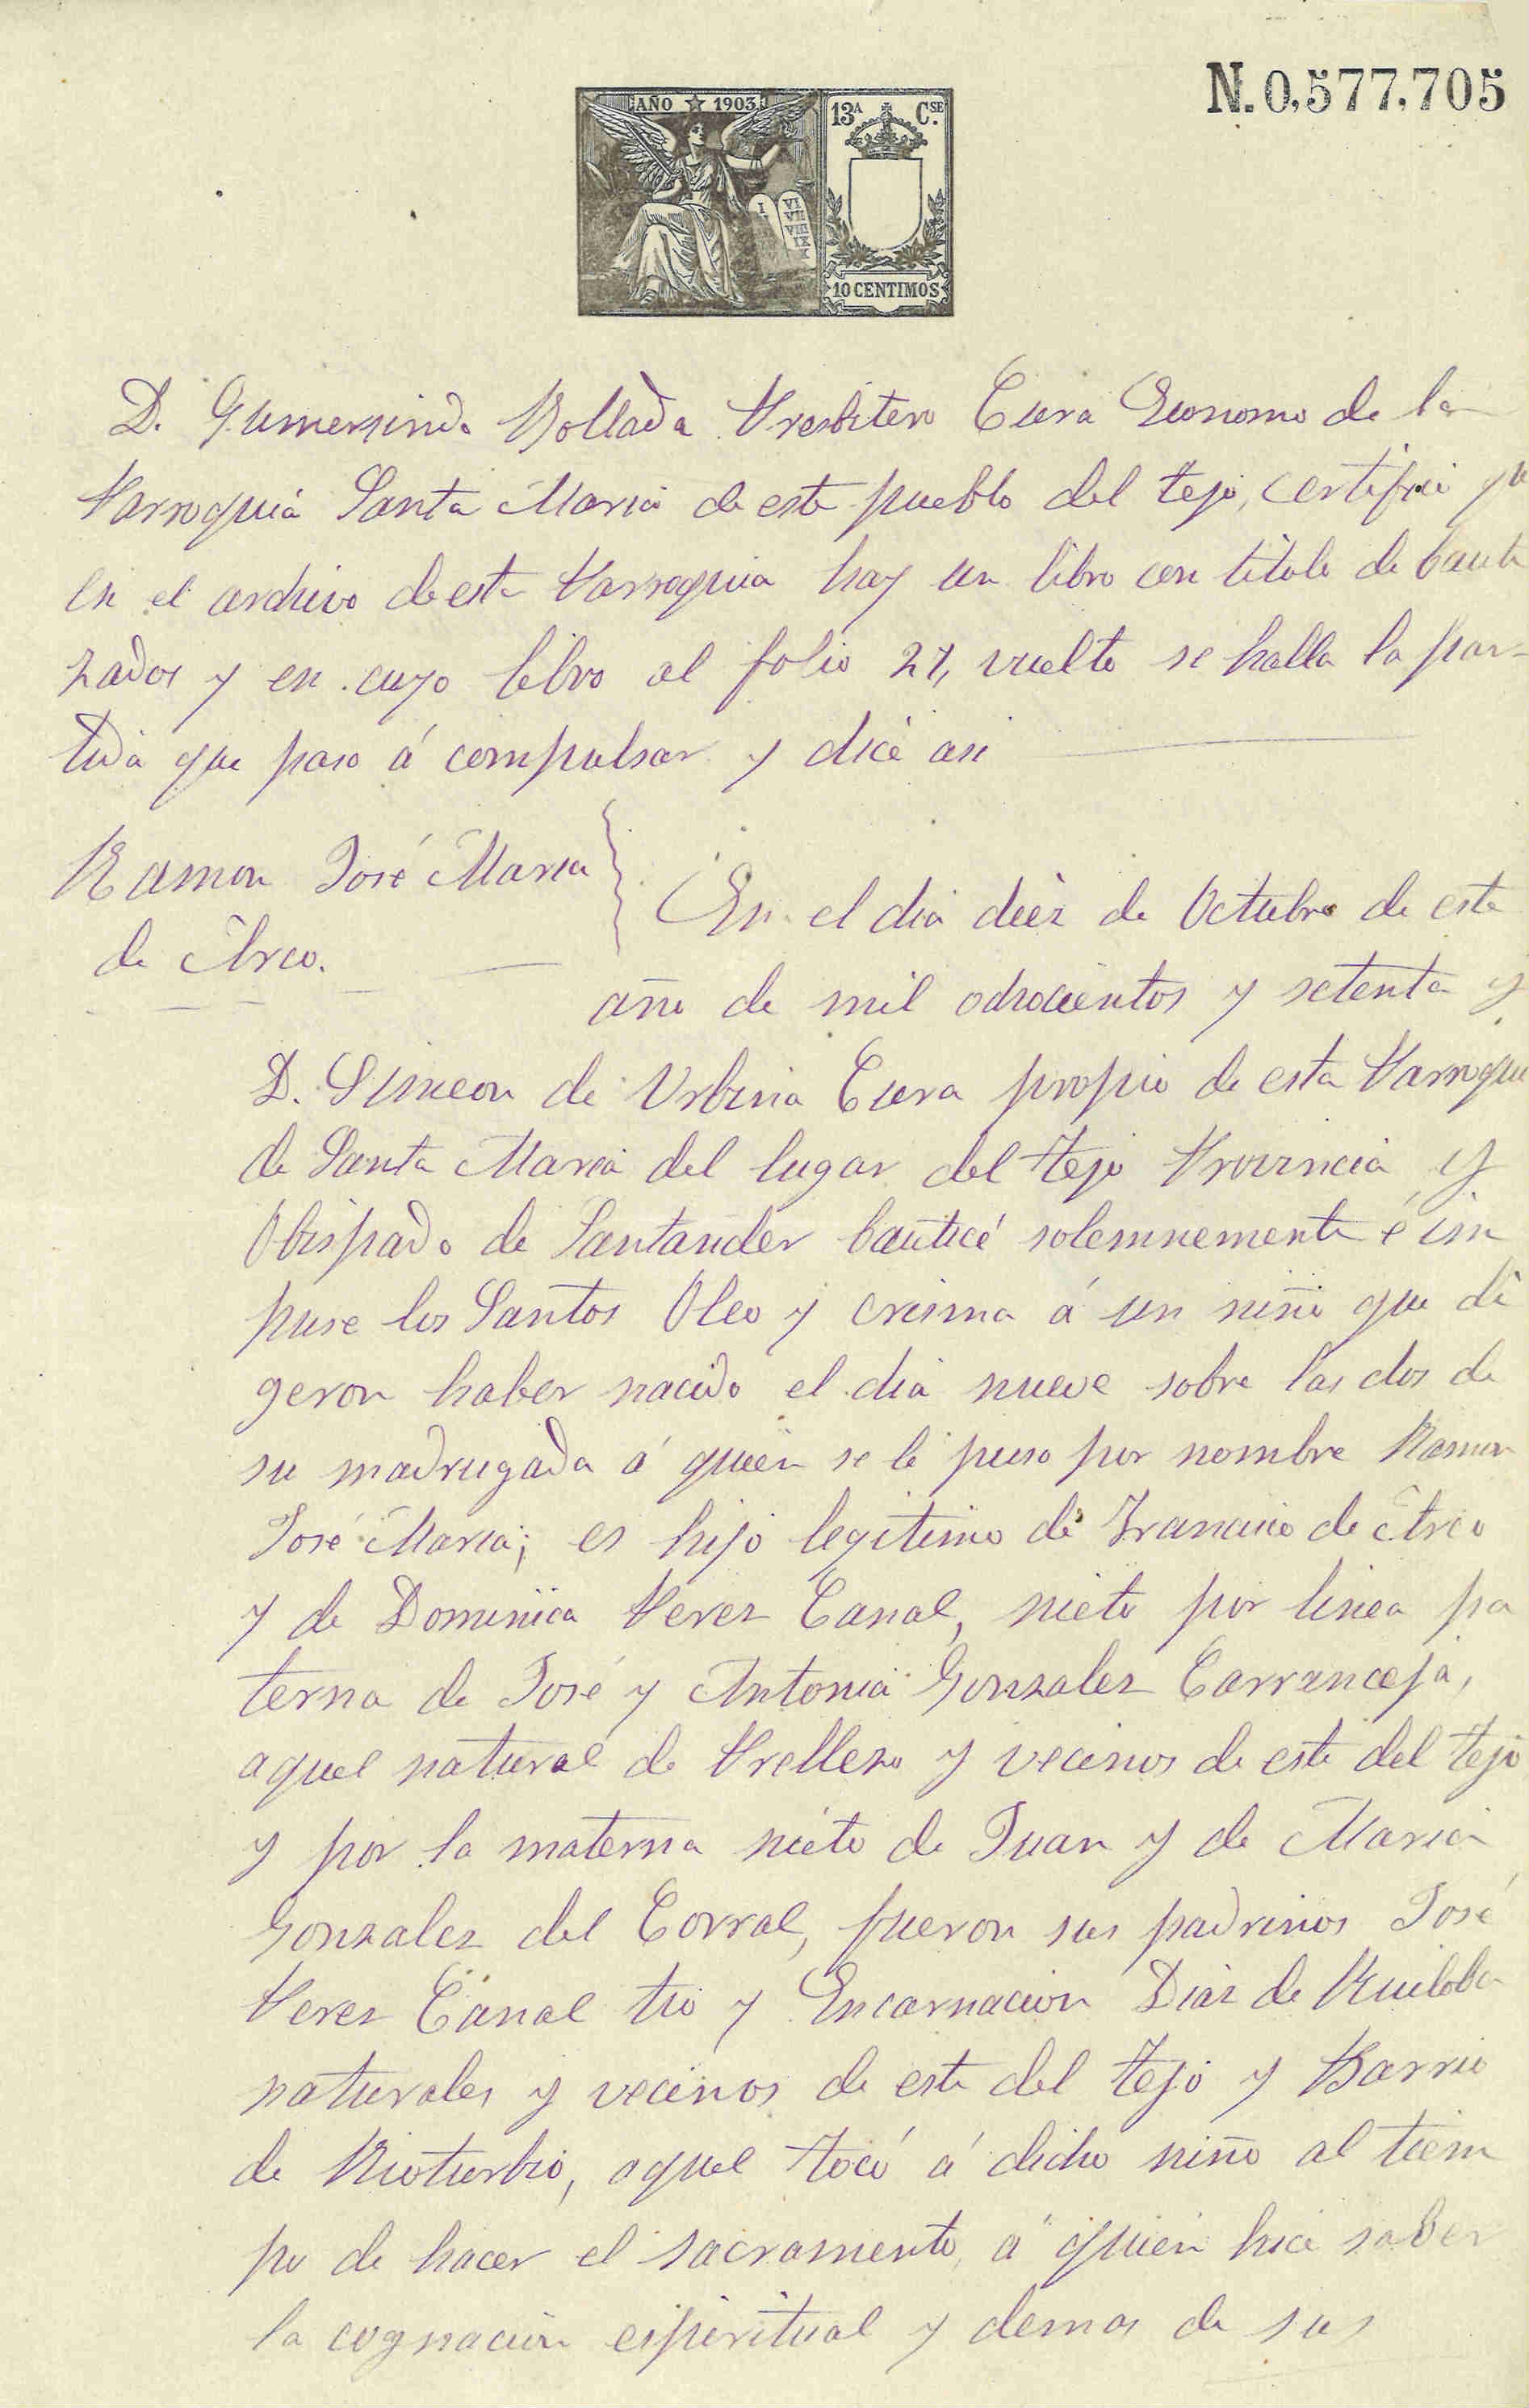 N. 0,577,705
AÑO ☆ 1903
13ª Cse.
I VI VII VIII IX X
10 CENTIMOS
D. Gumersindo Bollada Presbitero Cura Economo de la
Parroquia Santa Maria de este pueblo del tejo, certifico qu
en el archivo de esta Parroquia hay un libro con titulo de bauti
zados y en cuyo libro al folio 27, vuelto se halla la par-
tida que paso á compulsar y dice asi
Ramon José Maria
de Arco.
En el dia diez de Octubre de este
año de mil ochocientos y setenta y
D. Simeon de Urbina Cura propio de esta Parroqui
de Santa Maria del lugar del tejo Provincia y
Obispado de Santander bauticé solemnemente é im
puse los Santos Oleo y crisma á un niño que di
geron haber nacido el dia nueve sobre las dos de
su madrugada á quien se le puso por nombre Ramon
José Maria; es hijo legitimo de Francisco de Arco
y de Dominica Perez Canal, nieto por linea pa
terna de José y Antonia Gonzalez Carranceja,
aquel natural de Prellezo y vecinos de este del tejo
y por la materna nieto de Juan y de Maria
Gonzalez del Corral, fueron sus padrinos José
Perez Canal tio y Encarnacion Diaz de Ruiloba
naturales y vecinos de este del tejo y Barrio
de Rioturbio, aquel tocó á dicho niño al tiem
po de hacer el sacramento, á quien hice saber
la cognacion espiritual y demas de sus